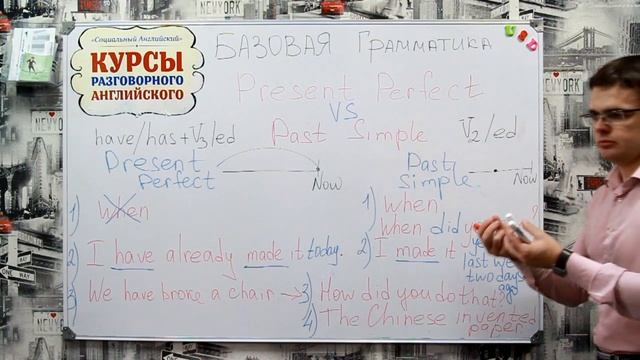 «Социальный Английский»
КУРСЫ
РАЗГОВОРНОГО
АНГЛИЙСКОГО
БАЗОВАЯ ГРАММАТИКА
Present Perfect
VS
Past Simple
have/has+V3/ed
V2/ed
Present
Perfect
Now
Past
Simple
Now
1) When
2) I have already made it today.
3) We have broke a chair →
1) When
When did ?
2) I made it
last we
two days
ago
3) How did you do that?
4) The Chinese invented
paper
I ♥
NEW YORK
NEW YORK